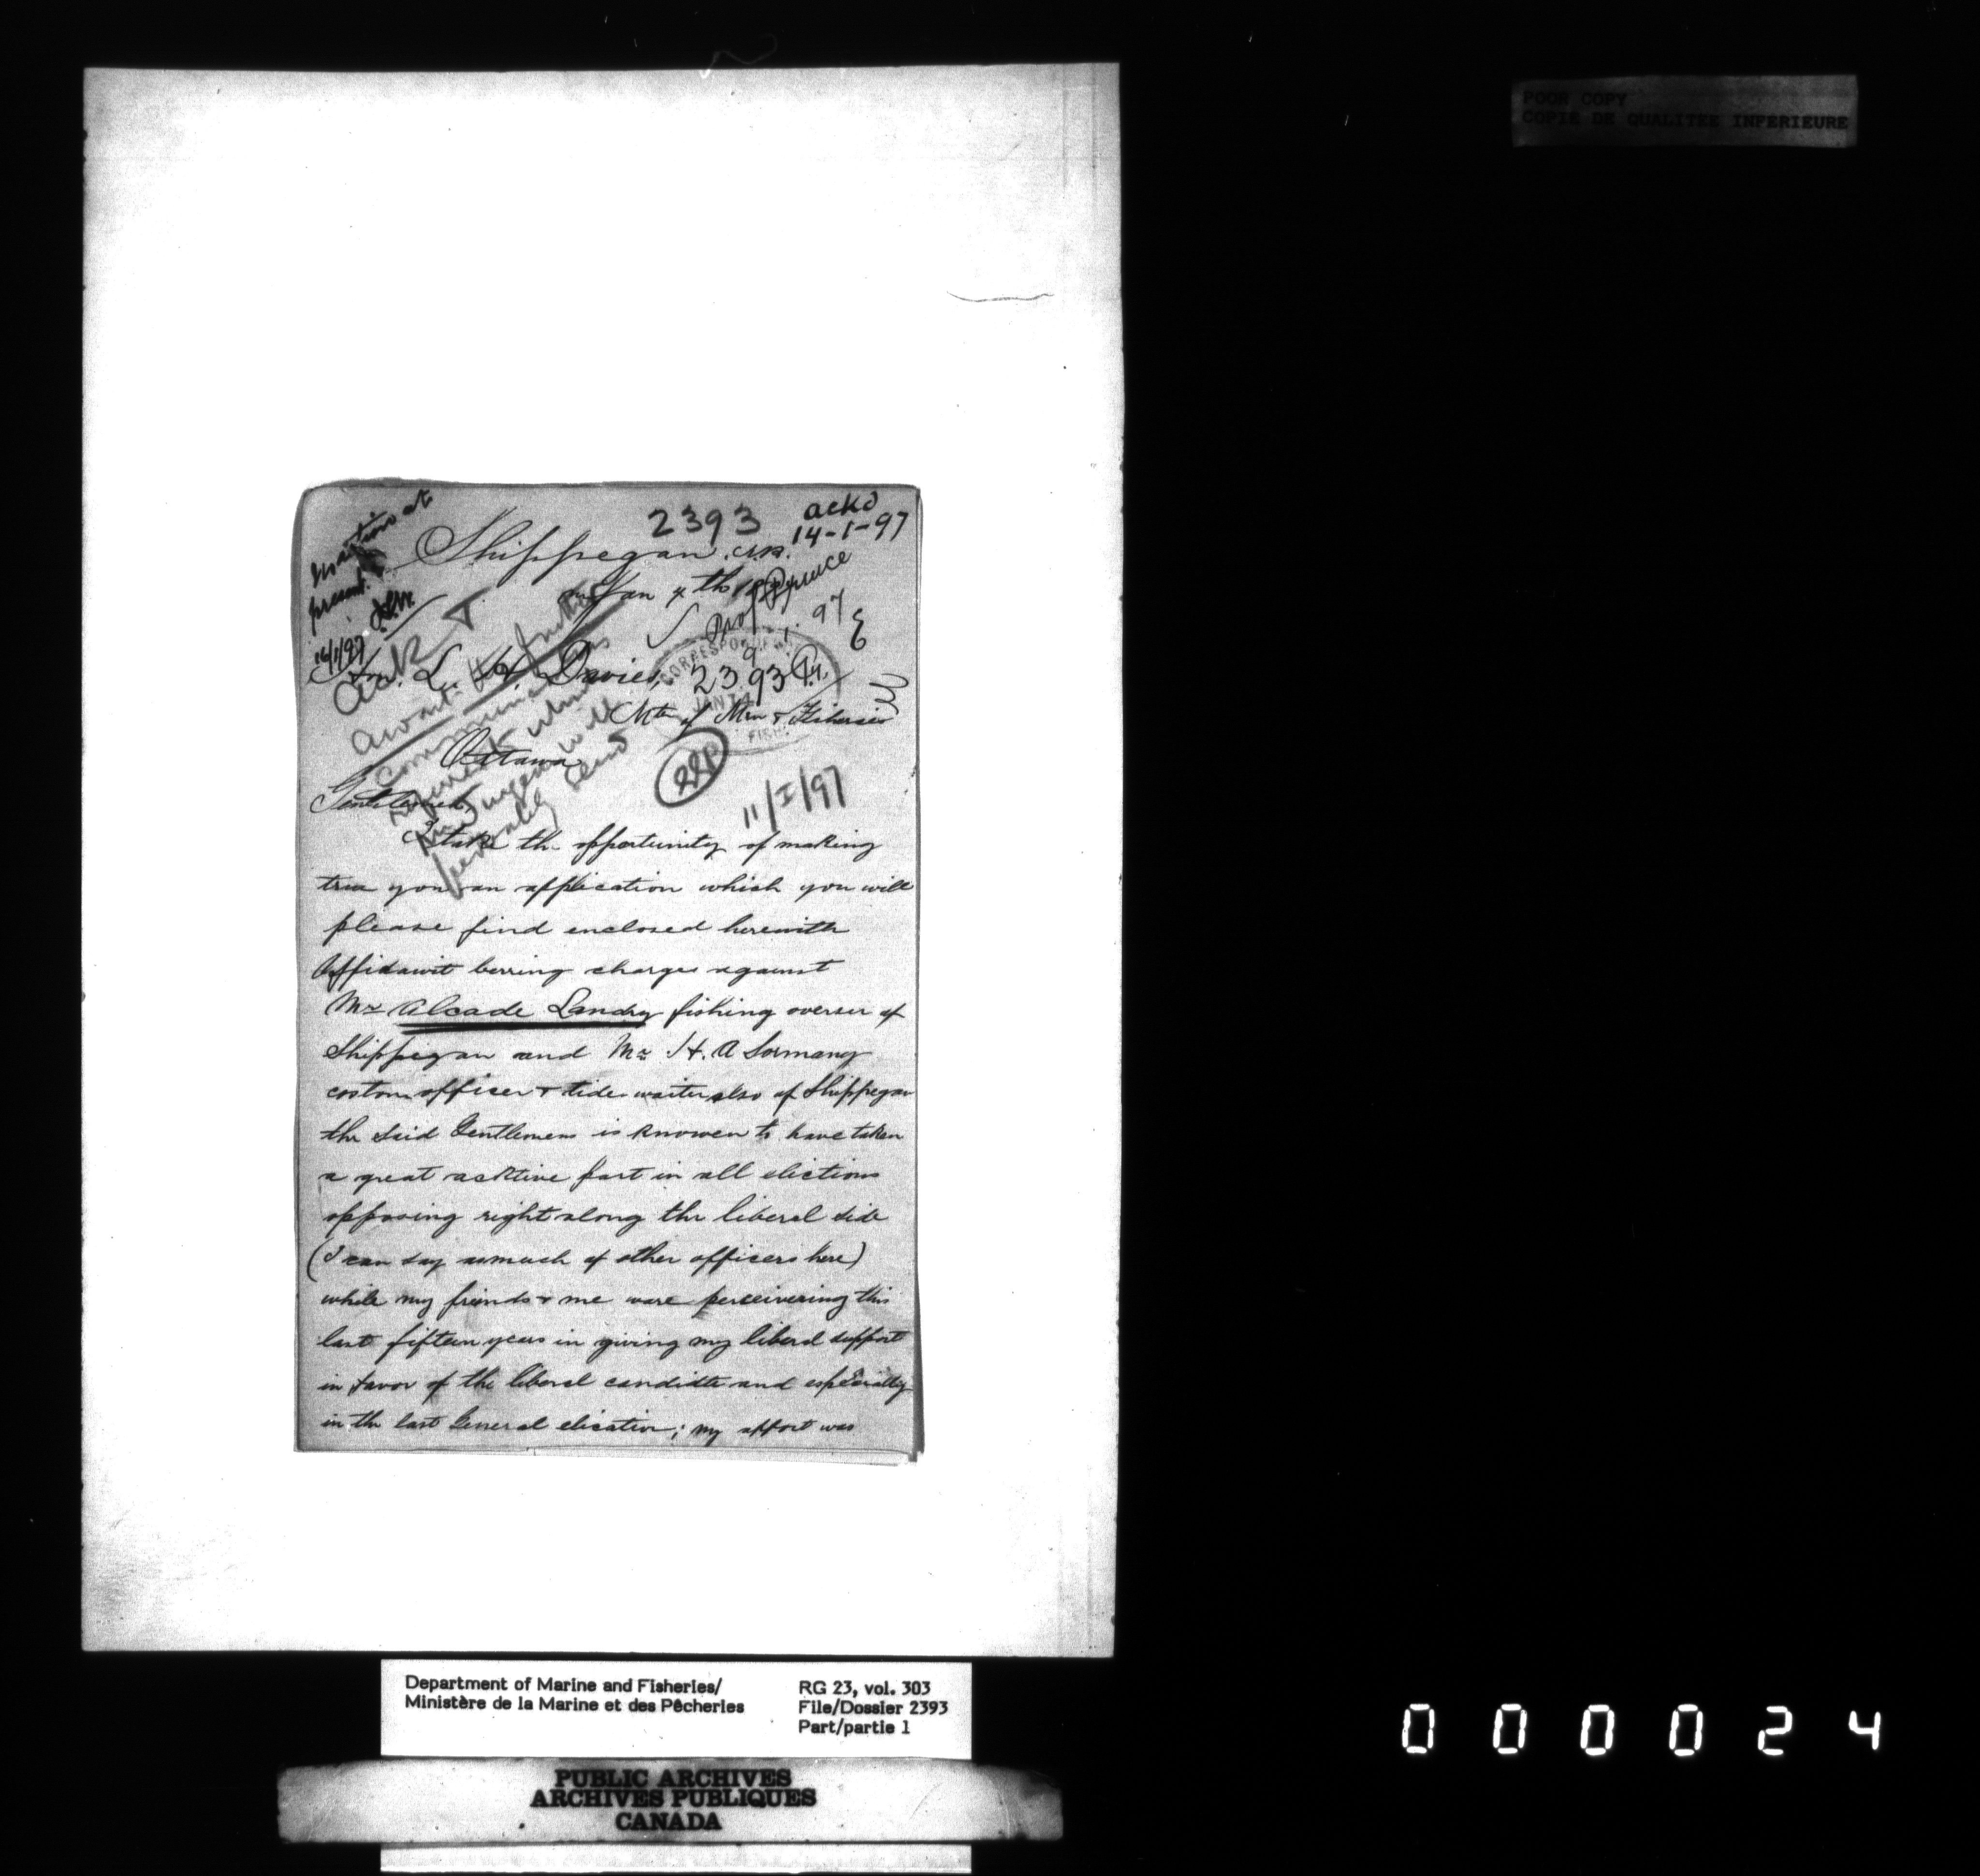 POOR COPY
COPIE DE QUALITEE INFERIEURE
No action at
present.
16/1/97
2393
ackd
14-1-97
Shippegan, N.B.
Jan 4th
Prof Prince
9 . 1 . 97
Hon. L. H. Davies,
CORRESPONDENCE
2393
JAN
FISH
Mtr of Mrn & Fisheries
Ottawa
Ack
await
communications
will
send
22P
11/I/97
Gentlemen,
I take the opportunity of making
true you an application which you will
please find enclosed herewith
Affidawit berring charges against
Mr Alcade Landry fishing overser of
Shippegan and Mr H. A Sormany
costom officer & tide waiter also of Shippegan
the Said Gentlemens is knowen to have taken
a great acktive part in all elictions
opposing right along the liberal side
(I can say asmuch of other officers here)
while my friends & me ware perceivering this
last fifteen years in giving my liberal support
in favor of the liberal candidte and especially
in the last General elication; my affort was
Department of Marine and Fisheries/
Ministère de la Marine et des Pêcheries
RG 23, vol. 303
File/Dossier 2393
Part/partie 1
PUBLIC ARCHIVES
ARCHIVES PUBLIQUES
CANADA
000024